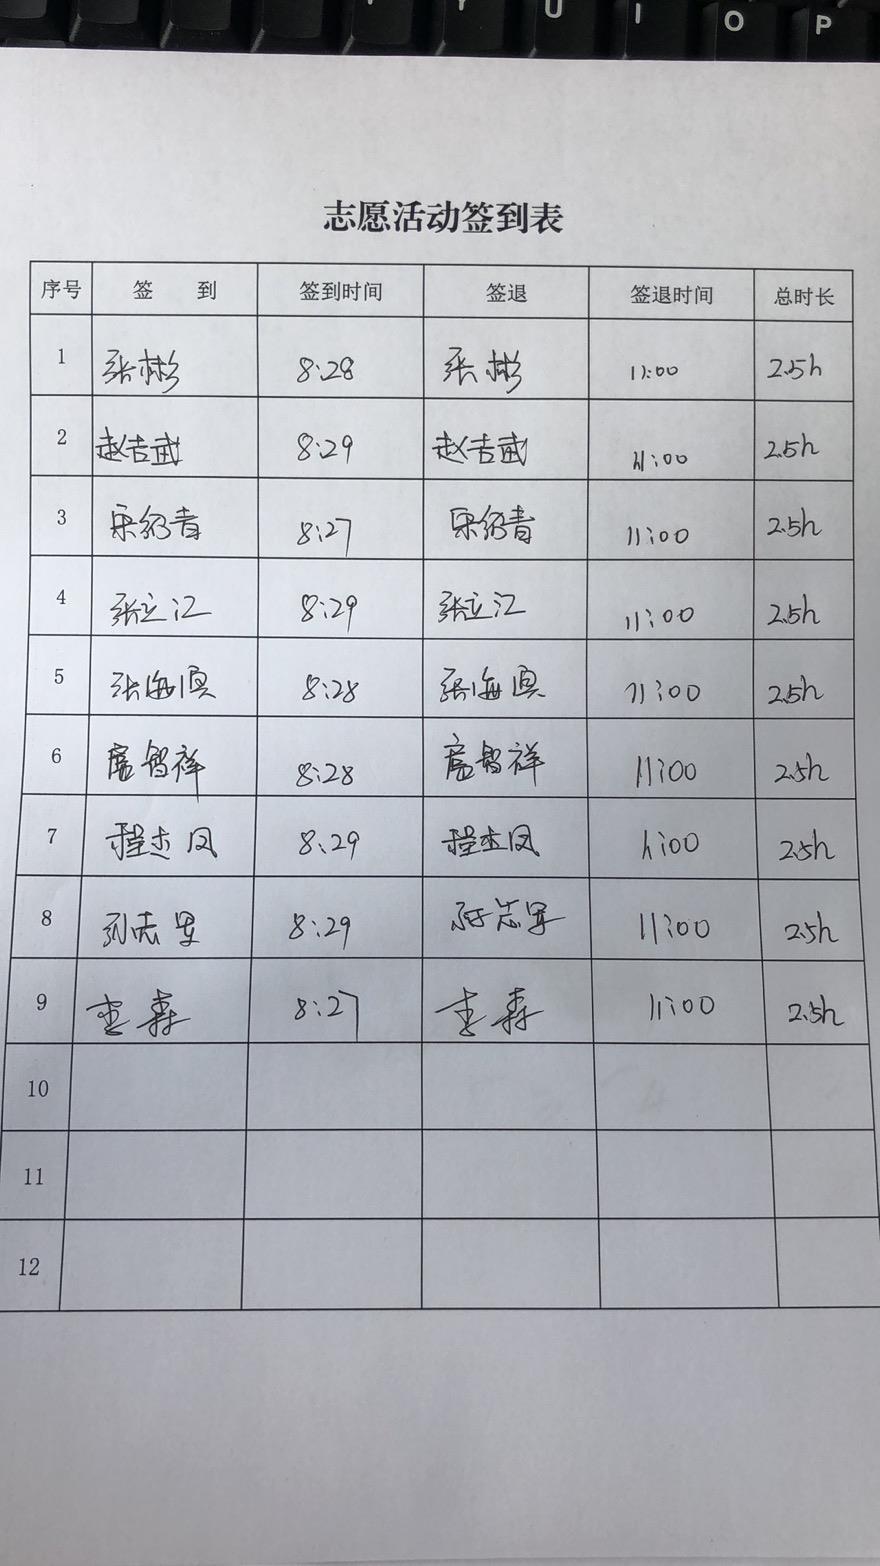 Y U I O P
志愿活动签到表
序号 签 到 签到时间 签退 签退时间 总时长
1 张彬 8:28 张彬 11:00 2.5h
2 赵吉武 8:29 赵吉武 11:00 2.5h
3 8:27 11:00 2.5h
4 张立江 8:29 张立江 11:00 2.5h
5 张海 8:28 张海 11:00 2.5h
6 智祥 8:28 智祥 11:00 2.5h
7 程杰凤 8:29 程杰凤 11:00 2.5h
8 8:29 11:00 2.5h
9 李森 8:27 李森 11:00 2.5h
10
11
12